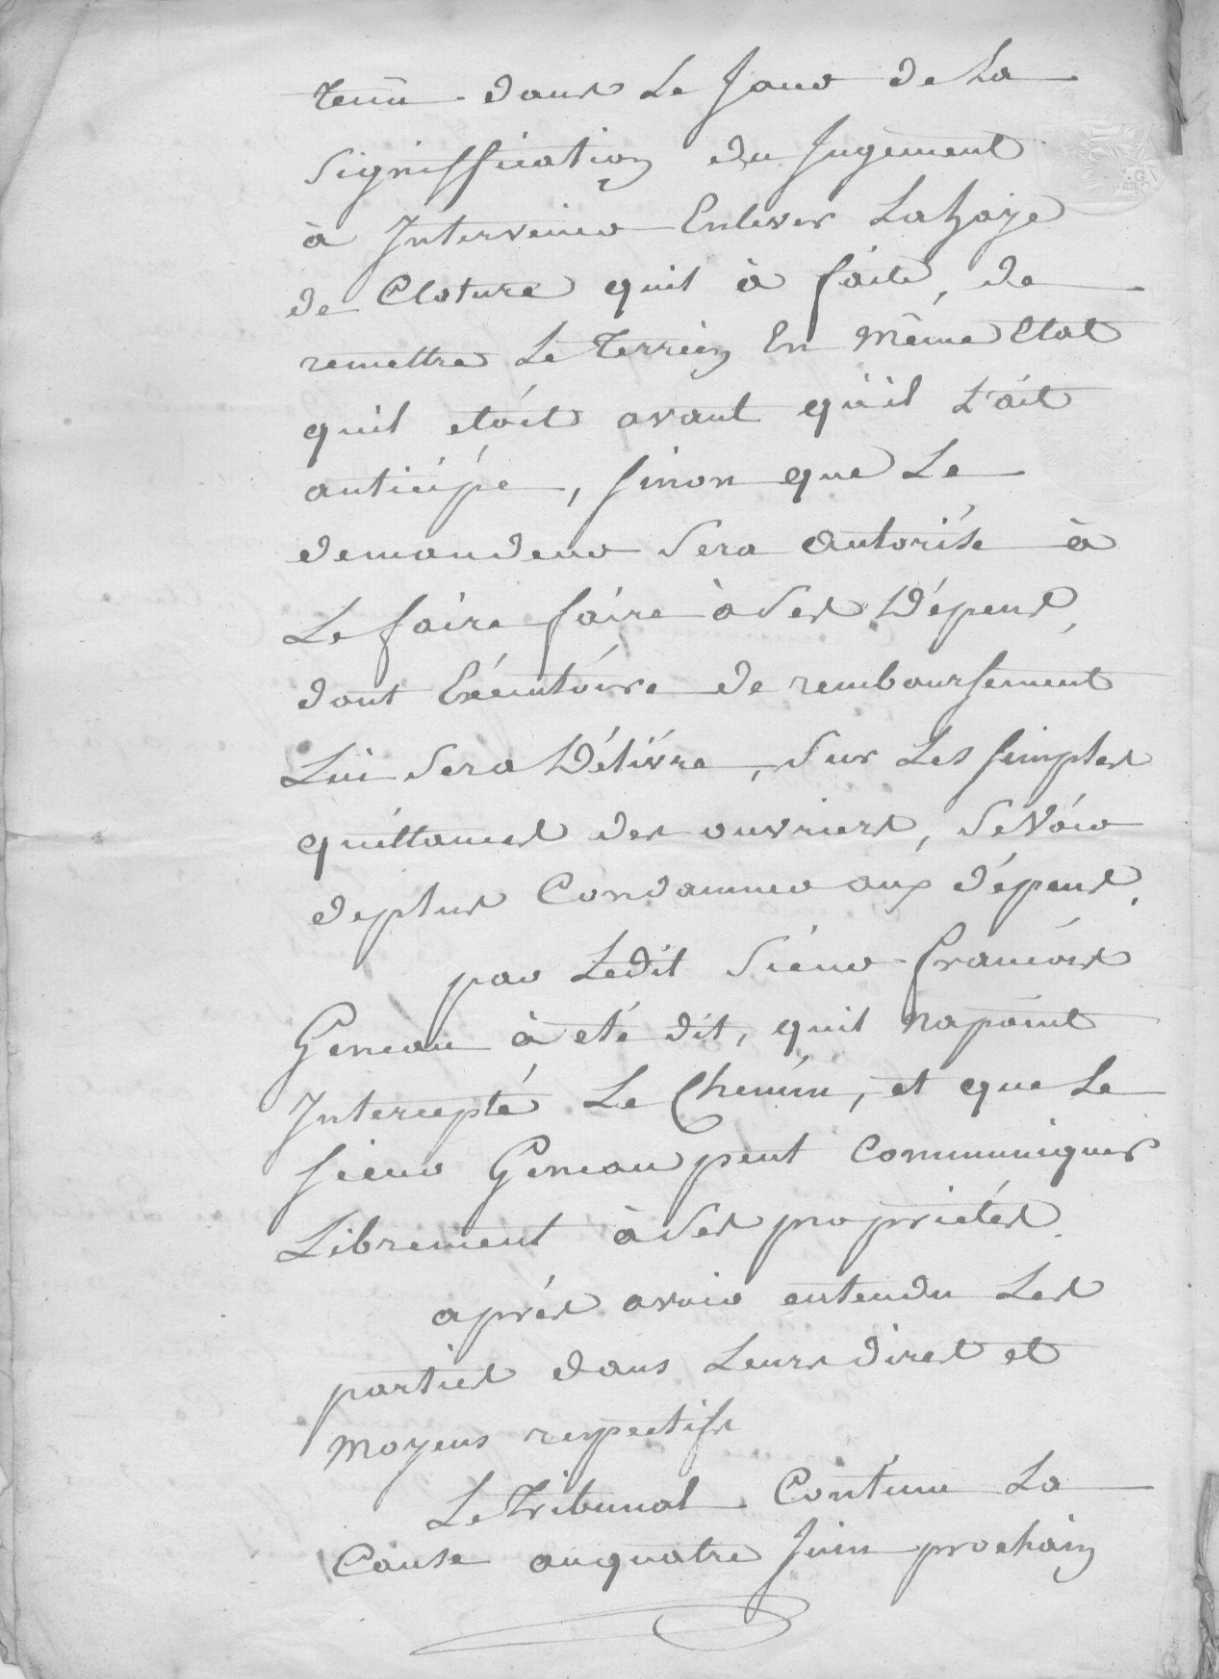 tenu dans Le Jour de La
Signiffication du Jugement
à Intervenir Enlever La haye
de Cloture quil à faite, de
remettre Le Terrein En même Etat
quil etóit avant qu'il L'ait
anticipé, sinon que Le
demandeur Sera Autorisé à
Le faire faire à Ses Dépens,
dont Exécutóire de remboursement
Lui Sera Délivré, Sur Les simples
quittances des ouvriers, Se Vóir
deplus Condamner aux dépens.
par Ledit Siéur francóis
Geneau à eté dit, quil napoint
Intercepté Le Chemin, et que Le
sieur Geneau peut Communiquer
Librement à Ses propriétés.
aprés avoir entendu Les
parties dans Leurs dires et
moyens respectifs
Le Tribunal Continu La
Cause auquatre Juin prochain